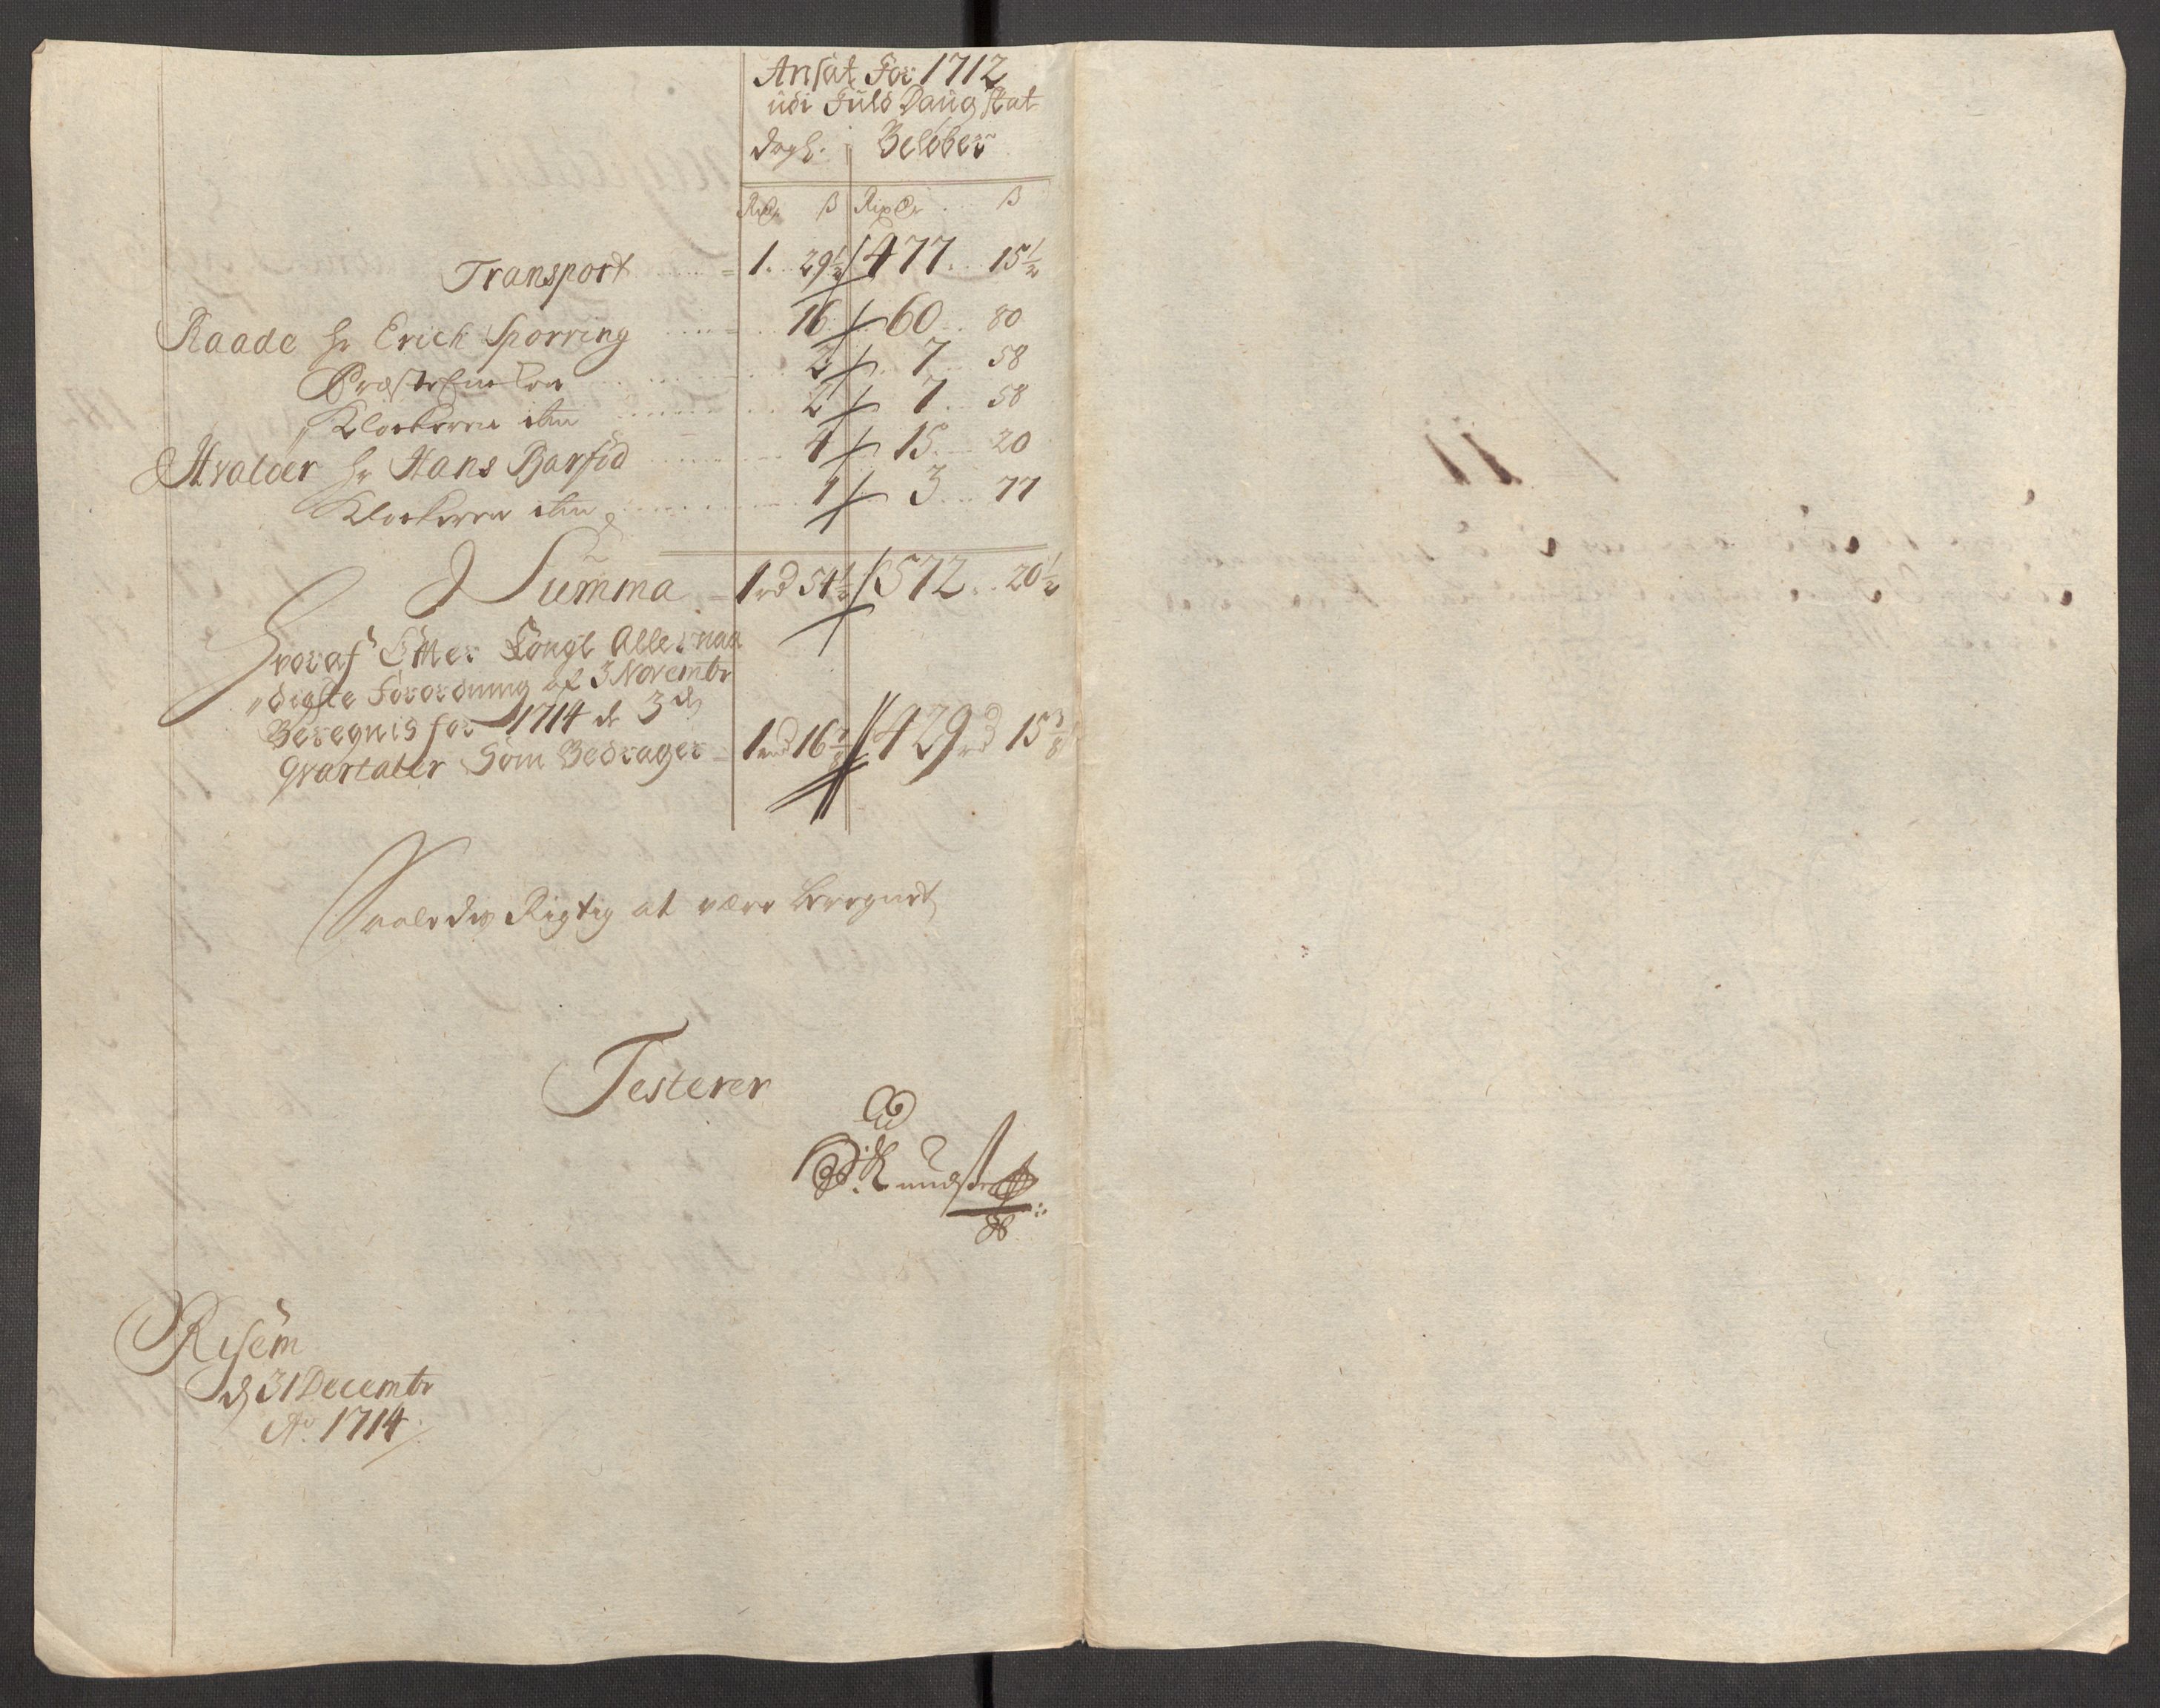 Ansat For 1712
udi Fuld Daugskat
dagl. Beløber
Rixdr ß Rixdr ß
Transport 1. 29½ 477. 15½
Raade hr Erich Sporring 16 60 80
Præste Enken 2 7 58
Klockeren ibm 2 7 58
Hvaløer hr Hans Barfød 4 15 20
Klockeren ibm 1 3 77
Summa 1rd 54½ 572 20½
Hvoraf Efter Kongl Allernaa
"digste Forordning af 3 Novembr
Beregnis for 1714 de 3de
Qvartaler Som Bedrager 1rd 16⅞ 429rd 15⅜
Saaledes Rigtig at være beregnet
Testerer
Risem
d 31 Decembr
Ao 1714